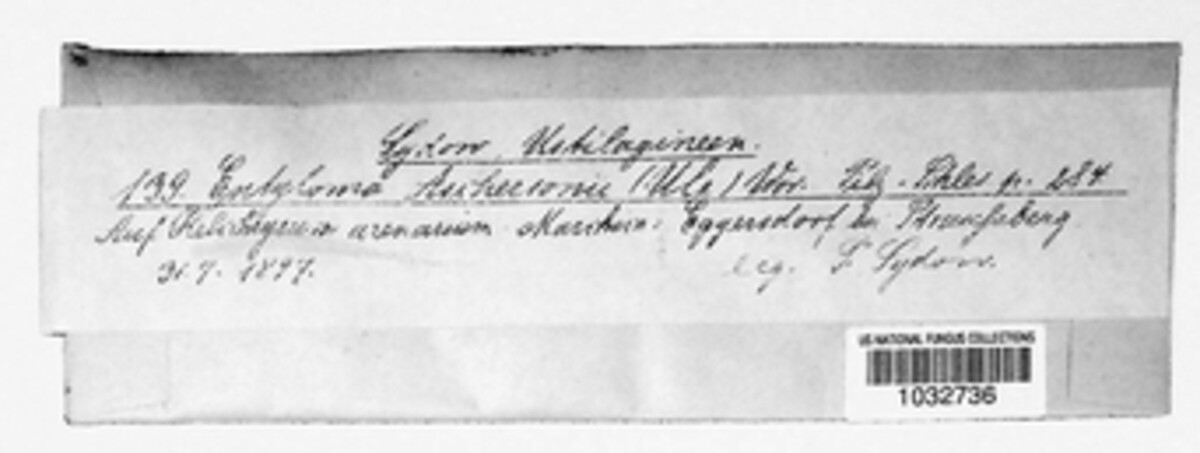 Sydow, Ustilagineen.
139 Entyloma Aschersonii (Ule) Wor. p. 284
Auf Helichrysum arenarium Eggersdorf bei Strausberg
31.7. 1897.
leg. P. Sydow.
US NATIONAL FUNGUS COLLECTIONS
1032736